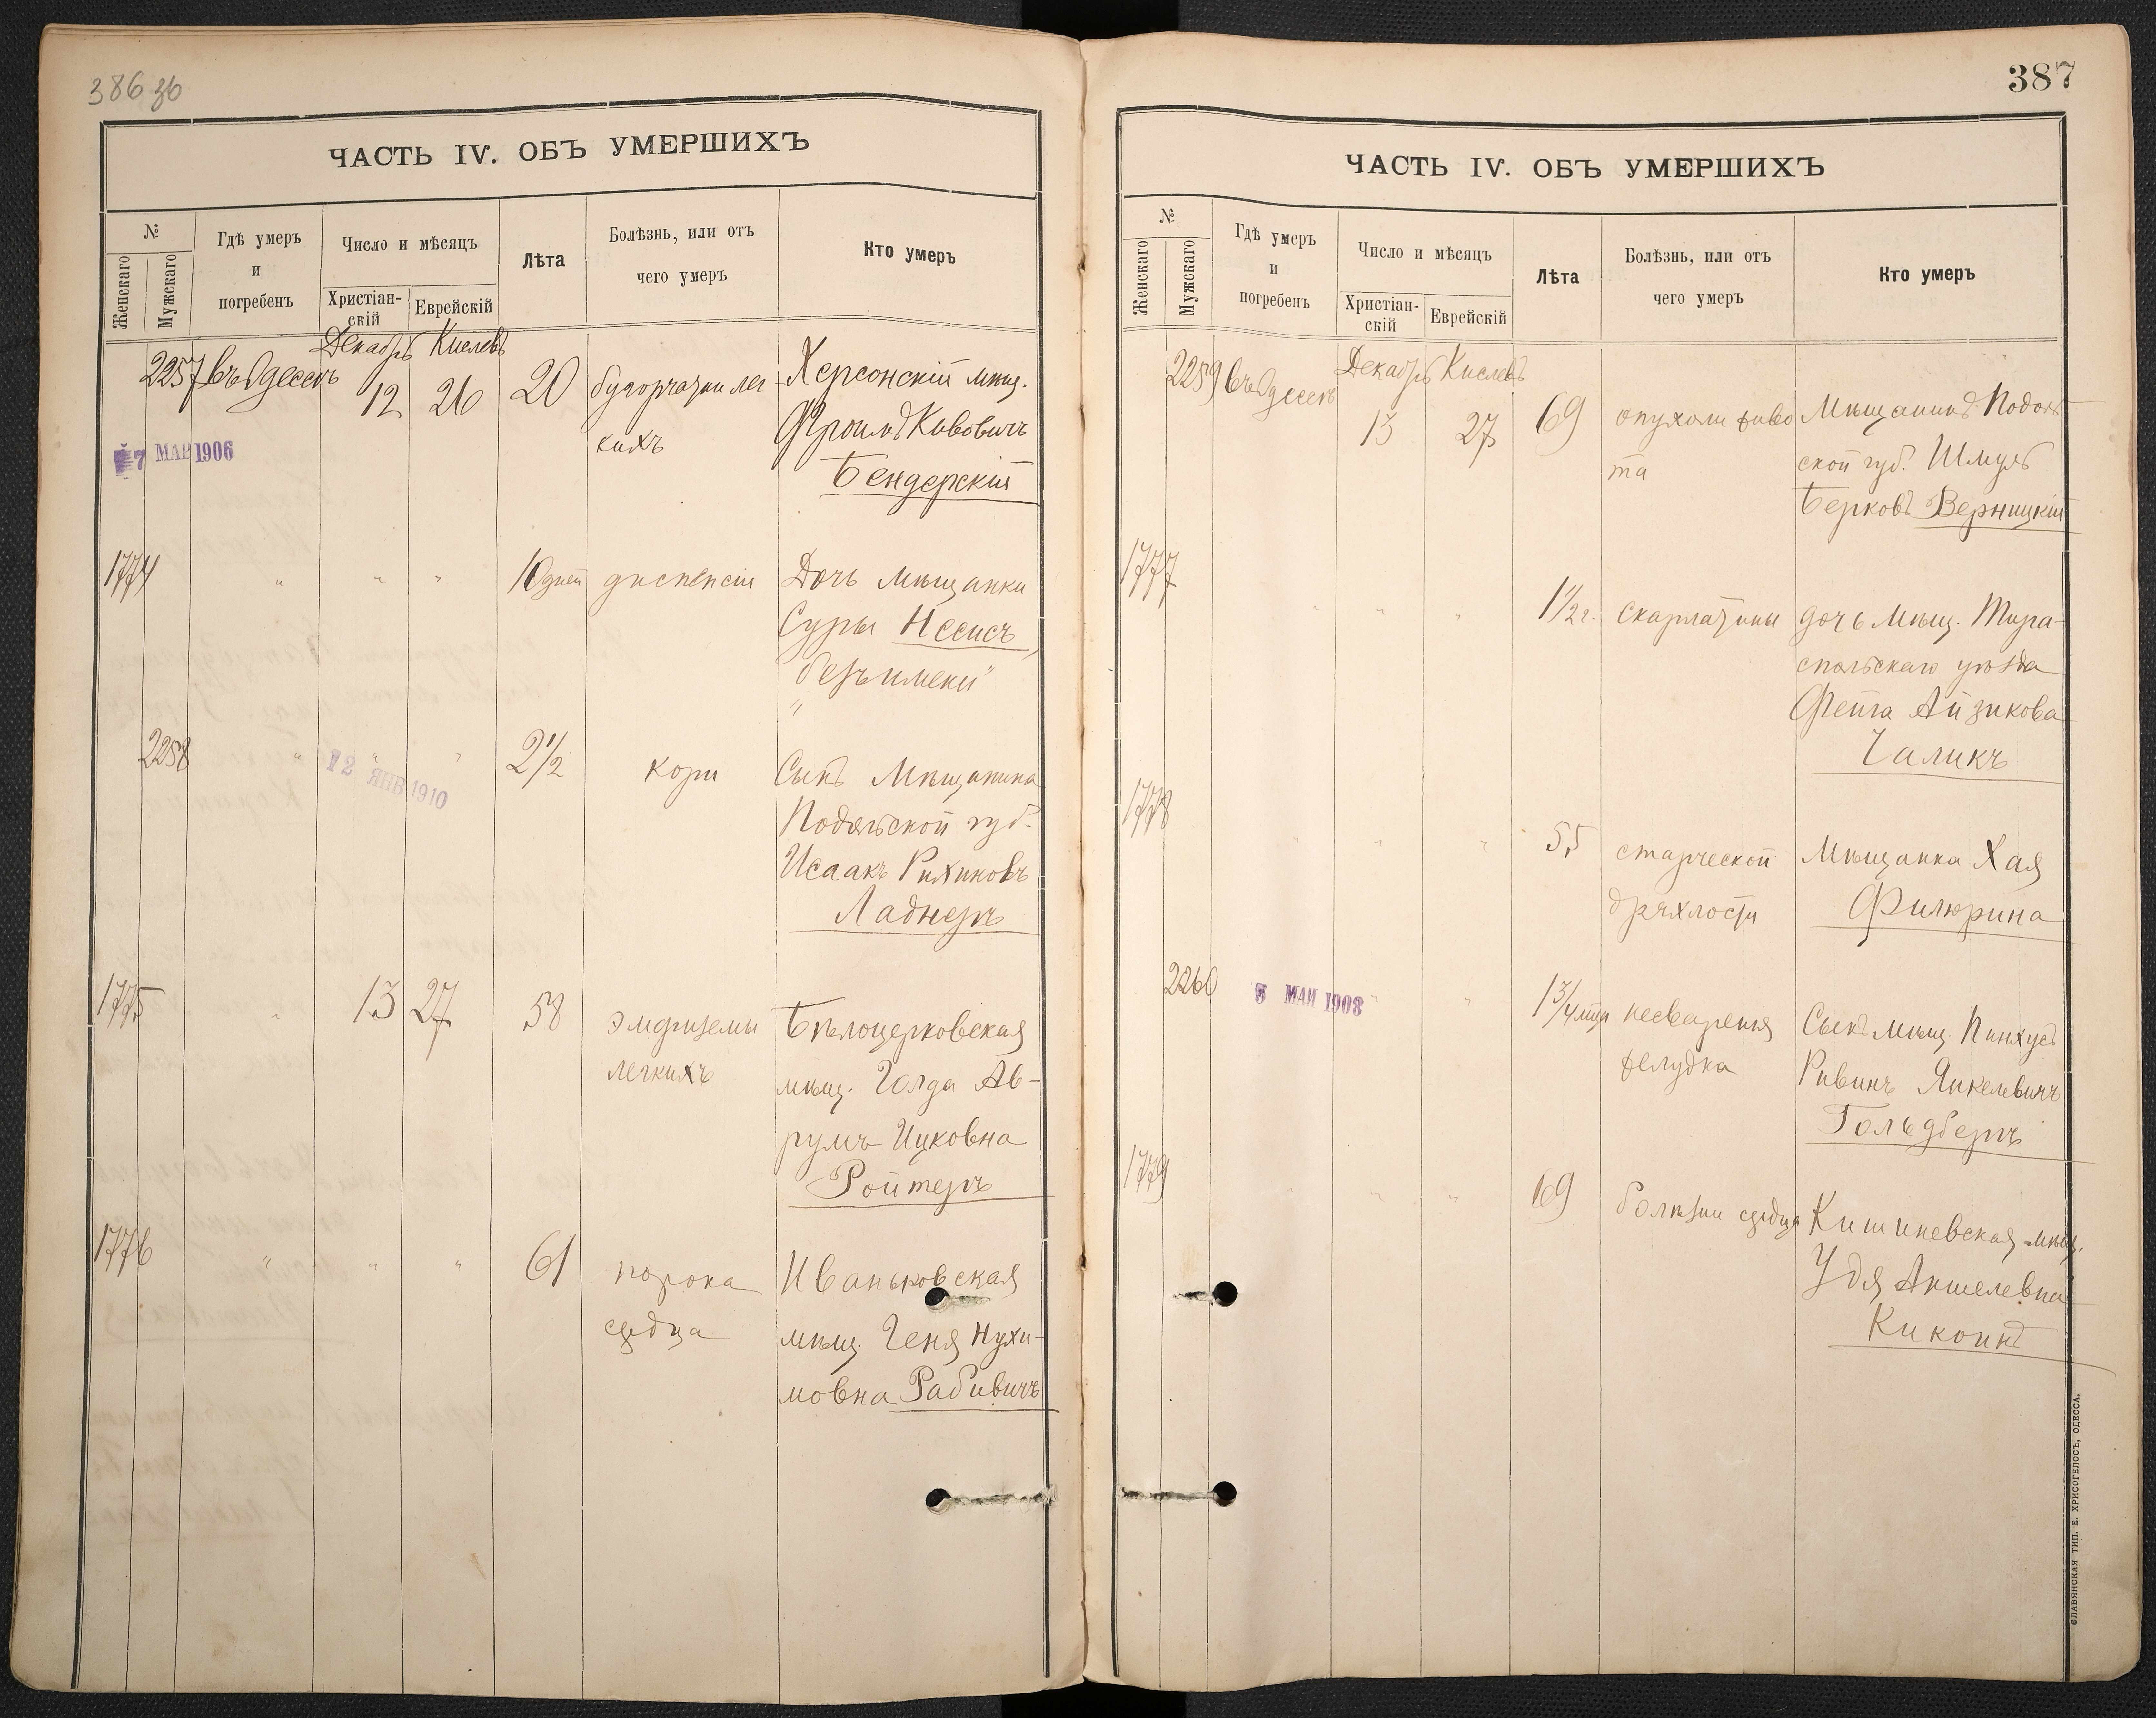 386 об
ЧАСТЬ IV. ОБЪ УМЕРШИХЪ
№
Женскаго
Мужскаго
Гдѣ умеръ
и
погребенъ
Число и мѣсяцъ
Христіан-
скій
Еврейскій
Лѣта
Болѣзнь, или отъ
чего умеръ
Кто умеръ
2257 въ Одессѣ Декабрь 12 Кислевъ 26 20 бугорчатки лег
кихъ
Херсонскій мѣщ.
Фроимъ Кивовичъ
Бендерскій
7 МАР 1906
1774 " " " 10 дней диспепсіи Дочь мѣщанки
Суры Несисъ,
"безъ имени"
2258 " " " 2 1/2 кори Сынъ Мѣщанина
Подольской губ.
Исаакъ Рихиковъ
Ладнеръ
12 ЯНВ 1910
1775 " 13 27 58 эмфиземы
легкихъ
Бѣлоцерковская
мѣщ. Голда Ав-
румъ Ицковна
Ройтеръ
1776 " " " 61 порока
сердца
Иваньковская
мѣщ. Геня Нухи-
мовна Рабивичъ
387
ЧАСТЬ IV. ОБЪ УМЕРШИХЪ
№
Женскаго
Мужскаго
Гдѣ умеръ
и
погребенъ
Число и мѣсяцъ
Христіан-
скій
Еврейскій
Лѣта
Болѣзнь, или отъ
чего умеръ
Кто умеръ
2259 въ Одессѣ Декабрь 13 Кислевъ 27 69 опухоли живо
та
Мѣщанинъ Подоль
ской губ. Шмуль
Берковъ Верницкій
1777 " " " 1 1/2 г. скарлатины дочь мѣщ. Тира-
спольскаго уѣзда
Фейга Айзикова
Чаликъ
1778 " " " 55 старческой
дряхлости
Мѣщанка Хая
Филюрина
2260 " " 1 3/4 мца несваренія
желудка
Сынъ мѣщ. Пинхусъ
Ривинъ Янкелевичъ
Гольдбергъ
5 МАЙ 1908
1779 " " " 69 болѣзни сердца Кишиневская мѣщ.
Удя Аншелевна
Кикоинъ
СЛАВЯНСКАЯ ТИП. Е. ХРИСОГЕЛОСЪ, ОДЕССА.